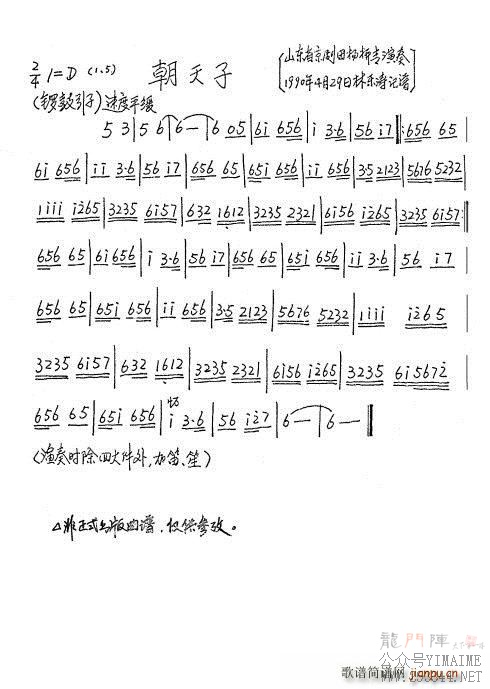 2/4 1=D (1、5) 朝天子
山东省京剧团杨桥考演奏
1990年4月29日林乐涛记谱
(锣鼓引子) 速度平缓
5 3 | 5 6 | 6 — | 6 05 | 6i 656 | i 3·6 | 56 i7 ‖: 656 65 |
6i 656 | ii 3·6 | 56 i7 | 656 65 | 65i 656 | ii 656 | 35 2123 | 5676 5232 |
1iii i265 | 3235 6i57 | 632 1612 | 3235 2321 | 6i56 i265 | 3235 6i57 :‖
656 65 | 6i 656 | i 3·6 | 56 i7 | 656 65 | 65i 656 | ii 3·6 | 56 i7 |
656 65 | 65i 656 | ii 656 | 3·5 2123 | 5676 5232 | 1iii i265 |
3235 6i57 | 632 1612 | 3235 2321 | 6i56 i265 | 3235 6i567i |
656 65 | 65i 656 | i 3·6 | 56 i27 | 6 — | 6 — ‖
(演奏时除四大件外,加笛、笙)
△非正式出版曲谱,仅供参改。
龍門陣
公众号YIMAIME
歌谱简谱网
jianpu.cn